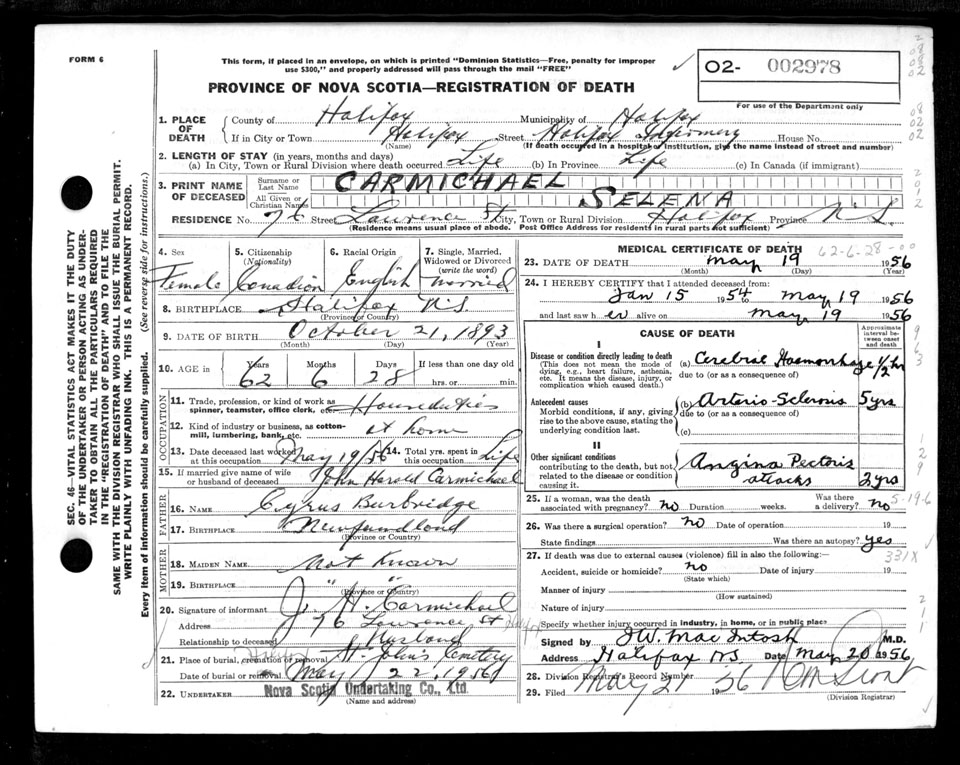 FORM 6
This form, if placed in an envelope, on which is printed "Dominion Statistics—Free, penalty for improper
use $300," and properly addressed will pass through the mail "FREE"
02- 002978
For use by the Department only
PROVINCE OF NOVA SCOTIA—REGISTRATION OF DEATH
1. PLACE OF DEATH County of Halifax Municipality of Halifax
If in City or Town Halifax Street Halifax Infirmary House No.
(Name) (If death occurred in a hospital or institution, give the name instead of street and number)
2. LENGTH OF STAY (in years, months and days)
(a) In City, Town or Rural Division where death occurred Life (b) In Province Life (c) In Canada (if immigrant)
3. PRINT NAME OF DECEASED Surname or Last Name CARMICHAEL
All Given or Christian Names SELENA
RESIDENCE No. 76 Street Lawrence St City, Town or Rural Division Halifax Province N.S.
(Residence means usual place of abode. Post Office Address for residents in rural parts not sufficient)
SEC. 46—VITAL STATISTICS ACT MAKES IT THE DUTY
OF THE UNDERTAKER OR PERSON ACTING AS UNDER-
TAKER TO OBTAIN ALL THE PARTICULARS REQUIRED
IN THE "REGISTRATION OF DEATH" AND TO FILE THE
SAME WITH THE DIVISION REGISTRAR WHO SHALL ISSUE THE BURIAL PERMIT.
WRITE PLAINLY WITH UNFADING INK. THIS IS A PERMANENT RECORD.
Every item of information should be carefully supplied. (See reverse side for instructions.)
4. Sex 5. Citizenship (Nationality) 6. Racial Origin 7. Single, Married, Widowed or Divorced (write the word)
Female Canadian English Married
8. BIRTHPLACE Halifax N.S.
(Province or Country)
9. DATE OF BIRTH October 21, 1893
(Month) (Day) (Year)
10. AGE in Years Months Days If less than one day old
62 6 28 hrs. or min.
OCCUPATION
11. Trade, profession, or kind of work as spinner, teamster, office clerk, etc. Houseduties
12. Kind of industry or business, as cotton-mill, lumbering, bank, etc. at home
13. Date deceased last worked at this occupation May 19/56 14. Total yrs. spent in this occupation Life
15. If married give name of wife or husband of deceased John Harold Carmichael
FATHER
16. NAME Cyrus Burbridge
17. BIRTHPLACE Newfoundland
(Province or Country)
MOTHER
18. MAIDEN NAME Not Known
19. BIRTHPLACE " "
(Province or Country)
20. Signature of informant J. H. Carmichael
Address 76 Lawrence St
Relationship to deceased Husband
21. Place of burial, cremation or removal St. John's Cemetery
Date of burial or removal May 22, 1956
22. UNDERTAKER Nova Scotia Undertaking Co., Ltd.
(Name and address)
MEDICAL CERTIFICATE OF DEATH 62-6-28-00
23. DATE OF DEATH May 19 1956
(Month) (Day) (Year)
24. I HEREBY CERTIFY that I attended deceased from:
Jan 15 1954 to May 19 1956
and last saw her alive on May 19 1956
CAUSE OF DEATH Approximate interval between onset and death
I
Disease or condition directly leading to death (a) Cerebral Haemorrhage 1/2 hr
(This does not mean the mode of dying, e.g., heart failure, asthenia, etc. It means the disease, injury, or complication which caused death.) due to (or as a consequence of)
Antecedent causes (b) Arterio-Sclerosis 5 yrs
Morbid conditions, if any, giving rise to the above cause, stating the underlying condition last. due to (or as a consequence of)
(c)
II
Other significant conditions contributing to the death, but not related to the disease or condition causing it. Angina Pectoris attacks 2 yrs
25. If a woman, was the death associated with pregnancy? no Duration weeks. Was there a delivery? no 5-19-6
26. Was there a surgical operation? no Date of operation 19
State findings Was there an autopsy? yes
27. If death was due to external causes (violence) fill in also the following: 331X
Accident, suicide or homicide? no Date of injury 19
(State which)
Manner of injury
(How sustained)
Nature of injury
Specify whether injury occurred in industry, in home, or in public place
Signed by J W. MacIntosh M.D.
Address Halifax N.S. Date May 20 1956
28. Division Registrar's Record Number
29. Filed May 21 1956
(Division Registrar)